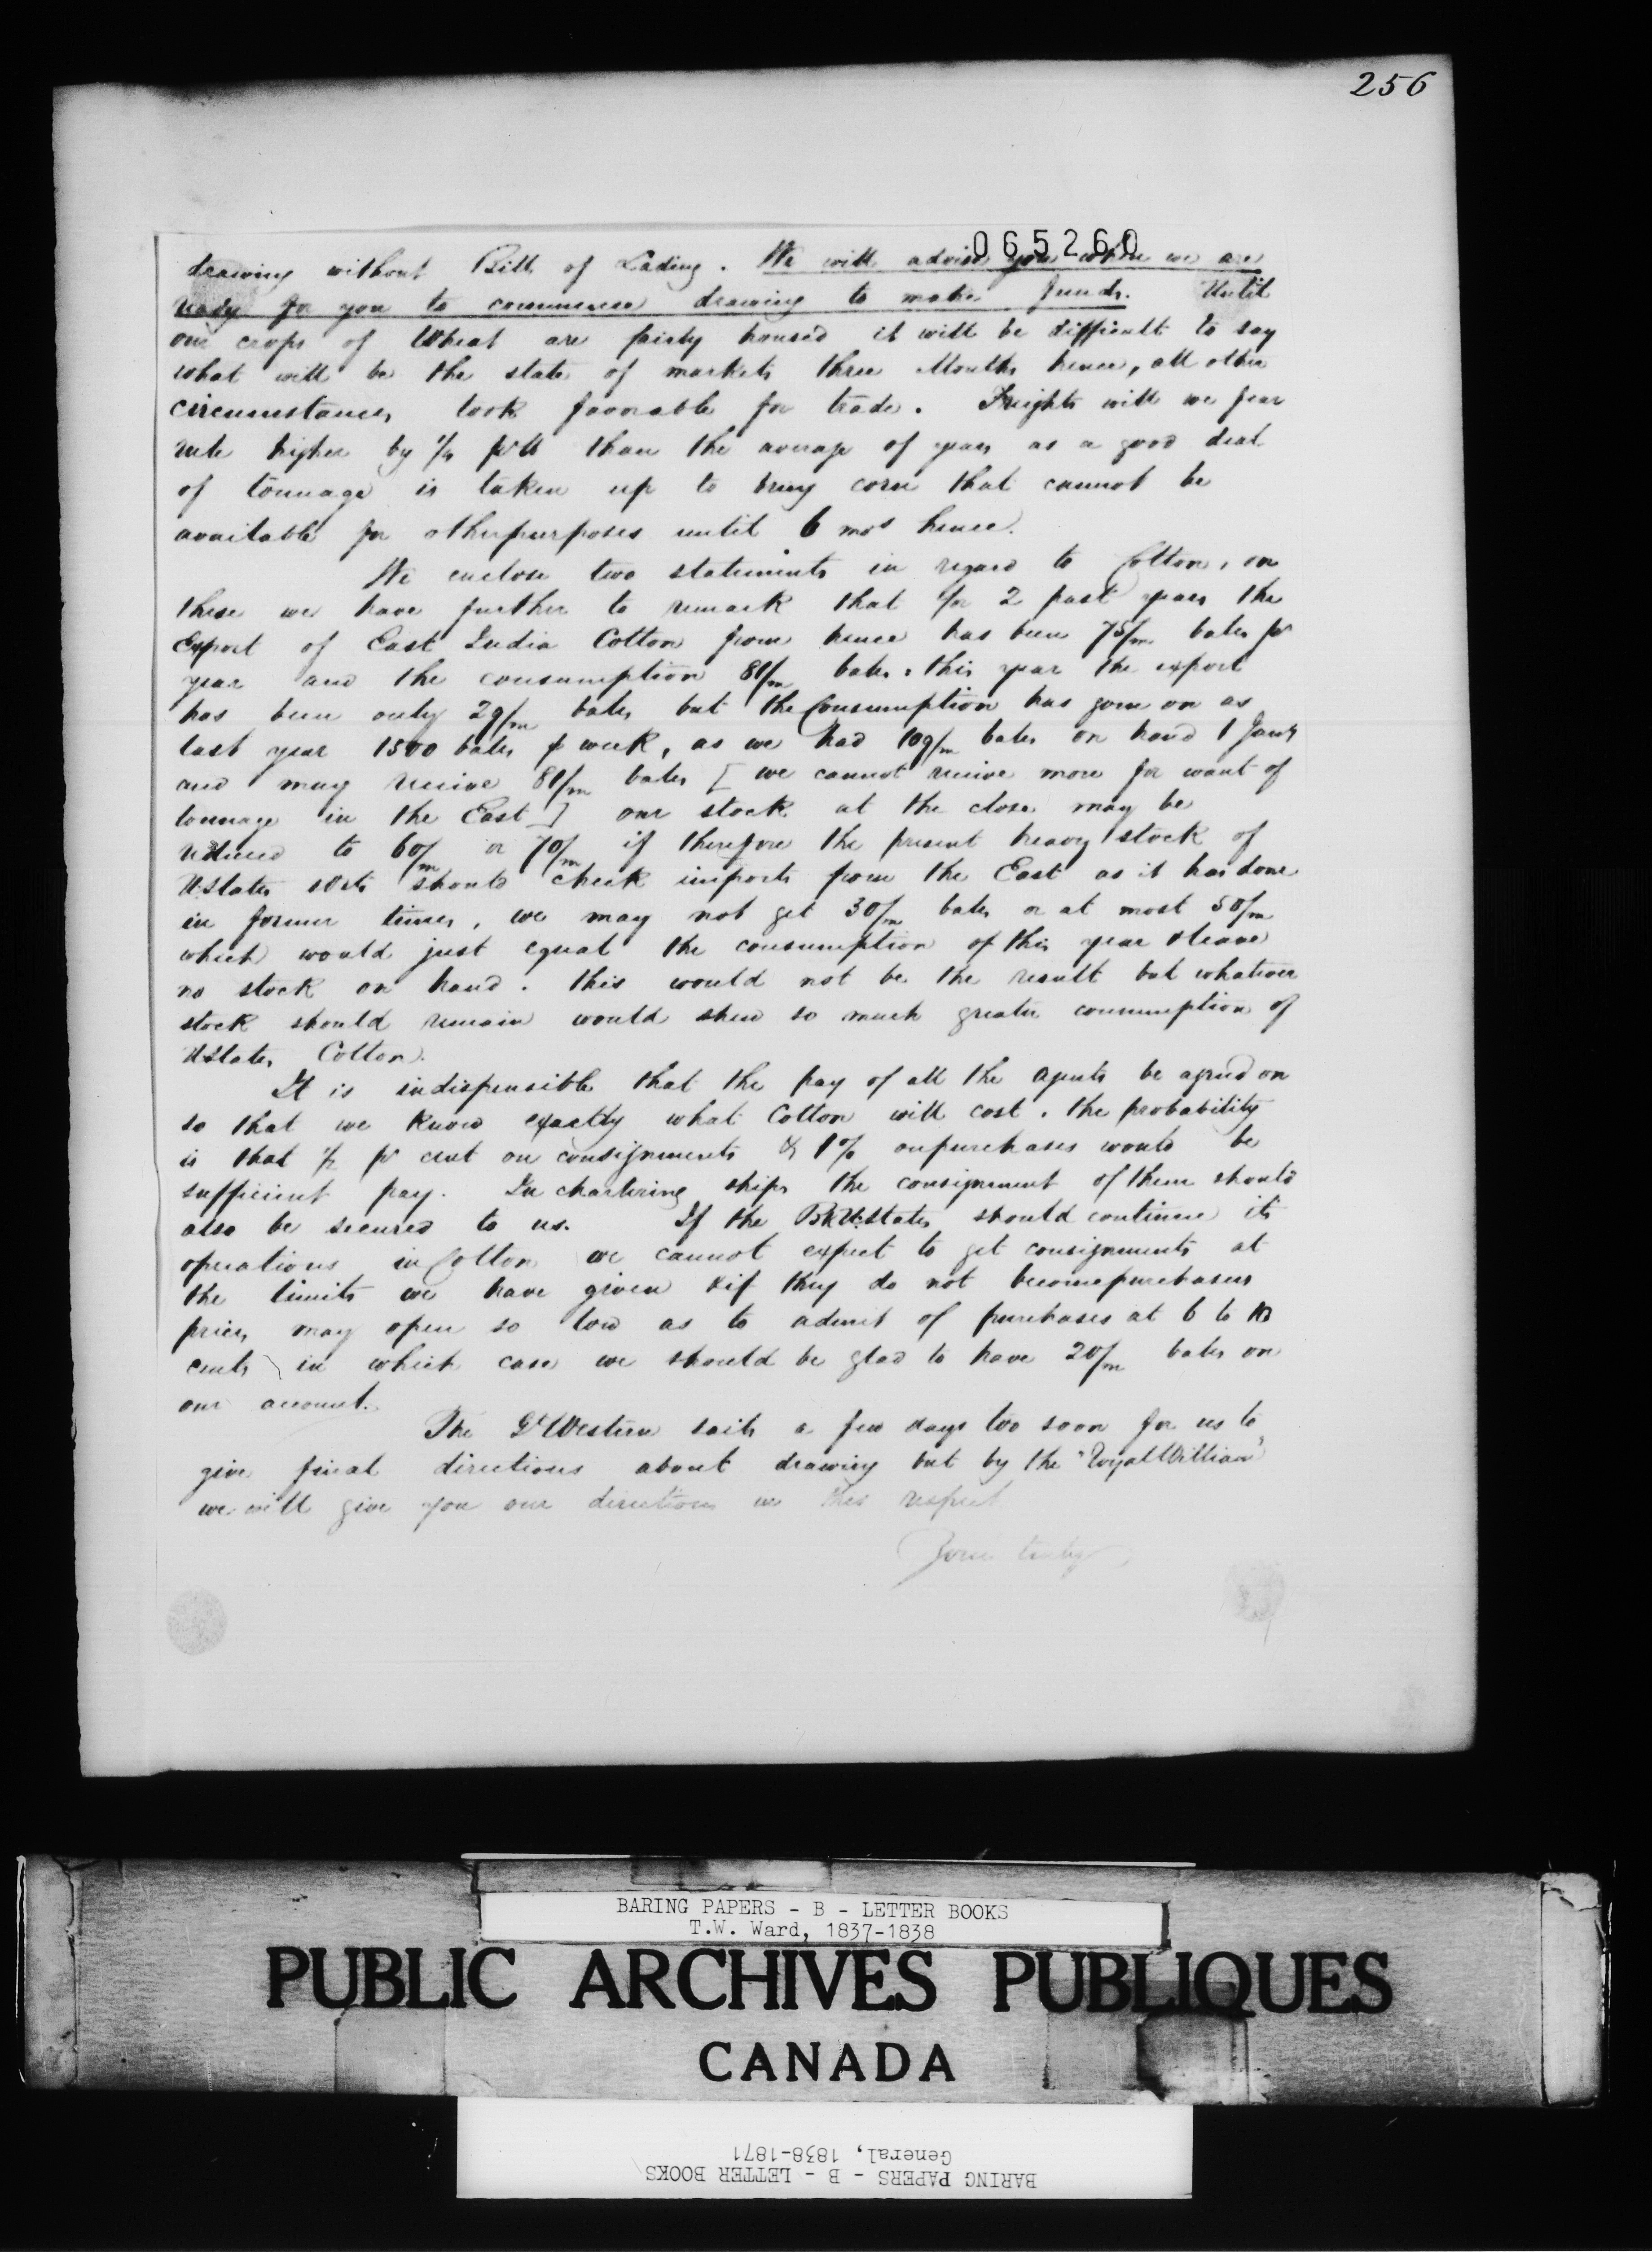 256
065260
drawing without Bill of Lading. We will advise you when we are
ready for you to commence drawing to make funds. Until
our crops of Wheat are fairly housed it will be difficult to say
what will be the state of markets three Months hence, all other
circumstances look favorable for trade. Freights will we fear
rule higher by 1/4 pr lb than the average of years as a good deal
of tonnage is taken up to bring corn that cannot be
available for other purposes until 6 mos hence.
We enclose two statements in regard to Cotton, on
these we have further to remark that for 2 past years the
Export of East India Cotton from hence has been 75/m bales pr
year and the consumption 81/m bales. this year the export
has been only 29/m bales but the Consumption has gone on as
last year 1500 bales p week, as we had 109/m bales on hand 1 Jany
and may receive 81/m bales [we cannot receive more for want of
tonnage in the East] our stock at the close may be
reduced to 60/m or 70/m if therefore the present heavy stock of
UStates sorts should check imports from the East as it has done
in former times, we may not get 30/m bales or at most 50/m
which would just equal the consumption of this year & leave
no stock on hand. this would not be the result but whatever
stock should remain would shew so much greater consumption of
UStates Cotton.
It is indispensible that the pay of all the agents be agreed on
so that we know exactly what Cotton will cost. the probability
is that 1/2 pr cent on consignments & 1% on purchases would be
sufficient pay. In chartering ships the consignment of them should
also be secured to us. If the Bk UStates should continue its
operations in Cotton we cannot expect to get consignments at
the limits we have given & if they do not become purchasers
prices may open so low as to admit of purchases at 6 to 10
cents in which case we should be glad to have 20/m bales on
our account.
The Gt Western sails a few days too soon for us to
give final directions about drawing but by the "Royal William"
we will give you our directions in this respect
Yours truly
BARING PAPERS - B - LETTER BOOKS
T.W. Ward, 1837-1838
PUBLIC ARCHIVES PUBLIQUES
CANADA
BARING PAPERS - B - LETTER BOOKS
General, 1838-1871